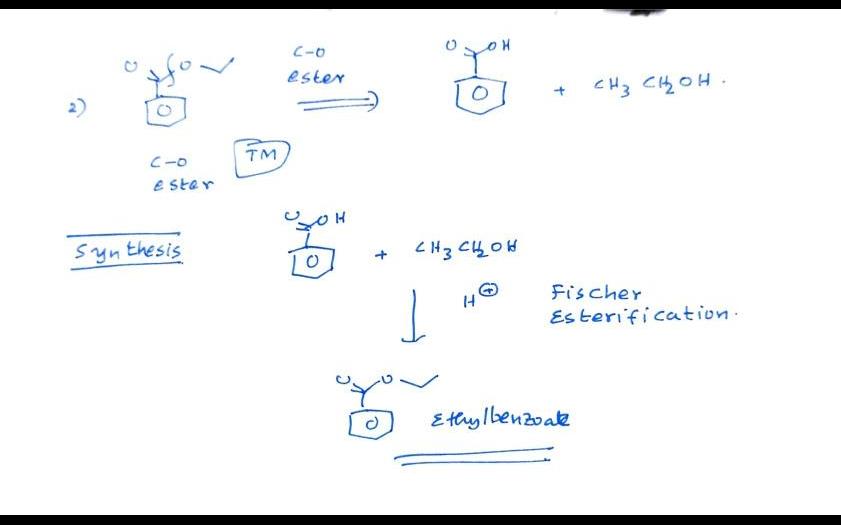 O O C-O O OH
ester + CH3 CH2 OH .
2)
C-O TM
ester
O OH
Synthesis + CH3 CH2 OH
H⊕ Fischer
Esterification.
O O
Ethylbenzoate